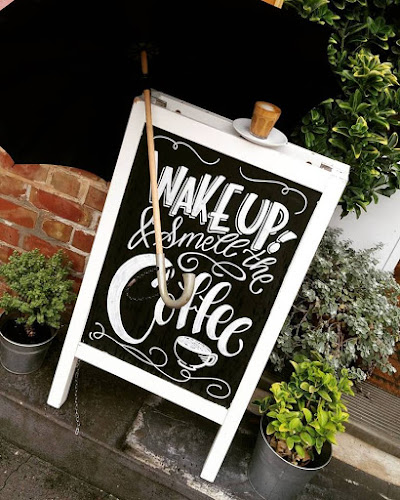 WAKE UP!
& Smell the
Coffee